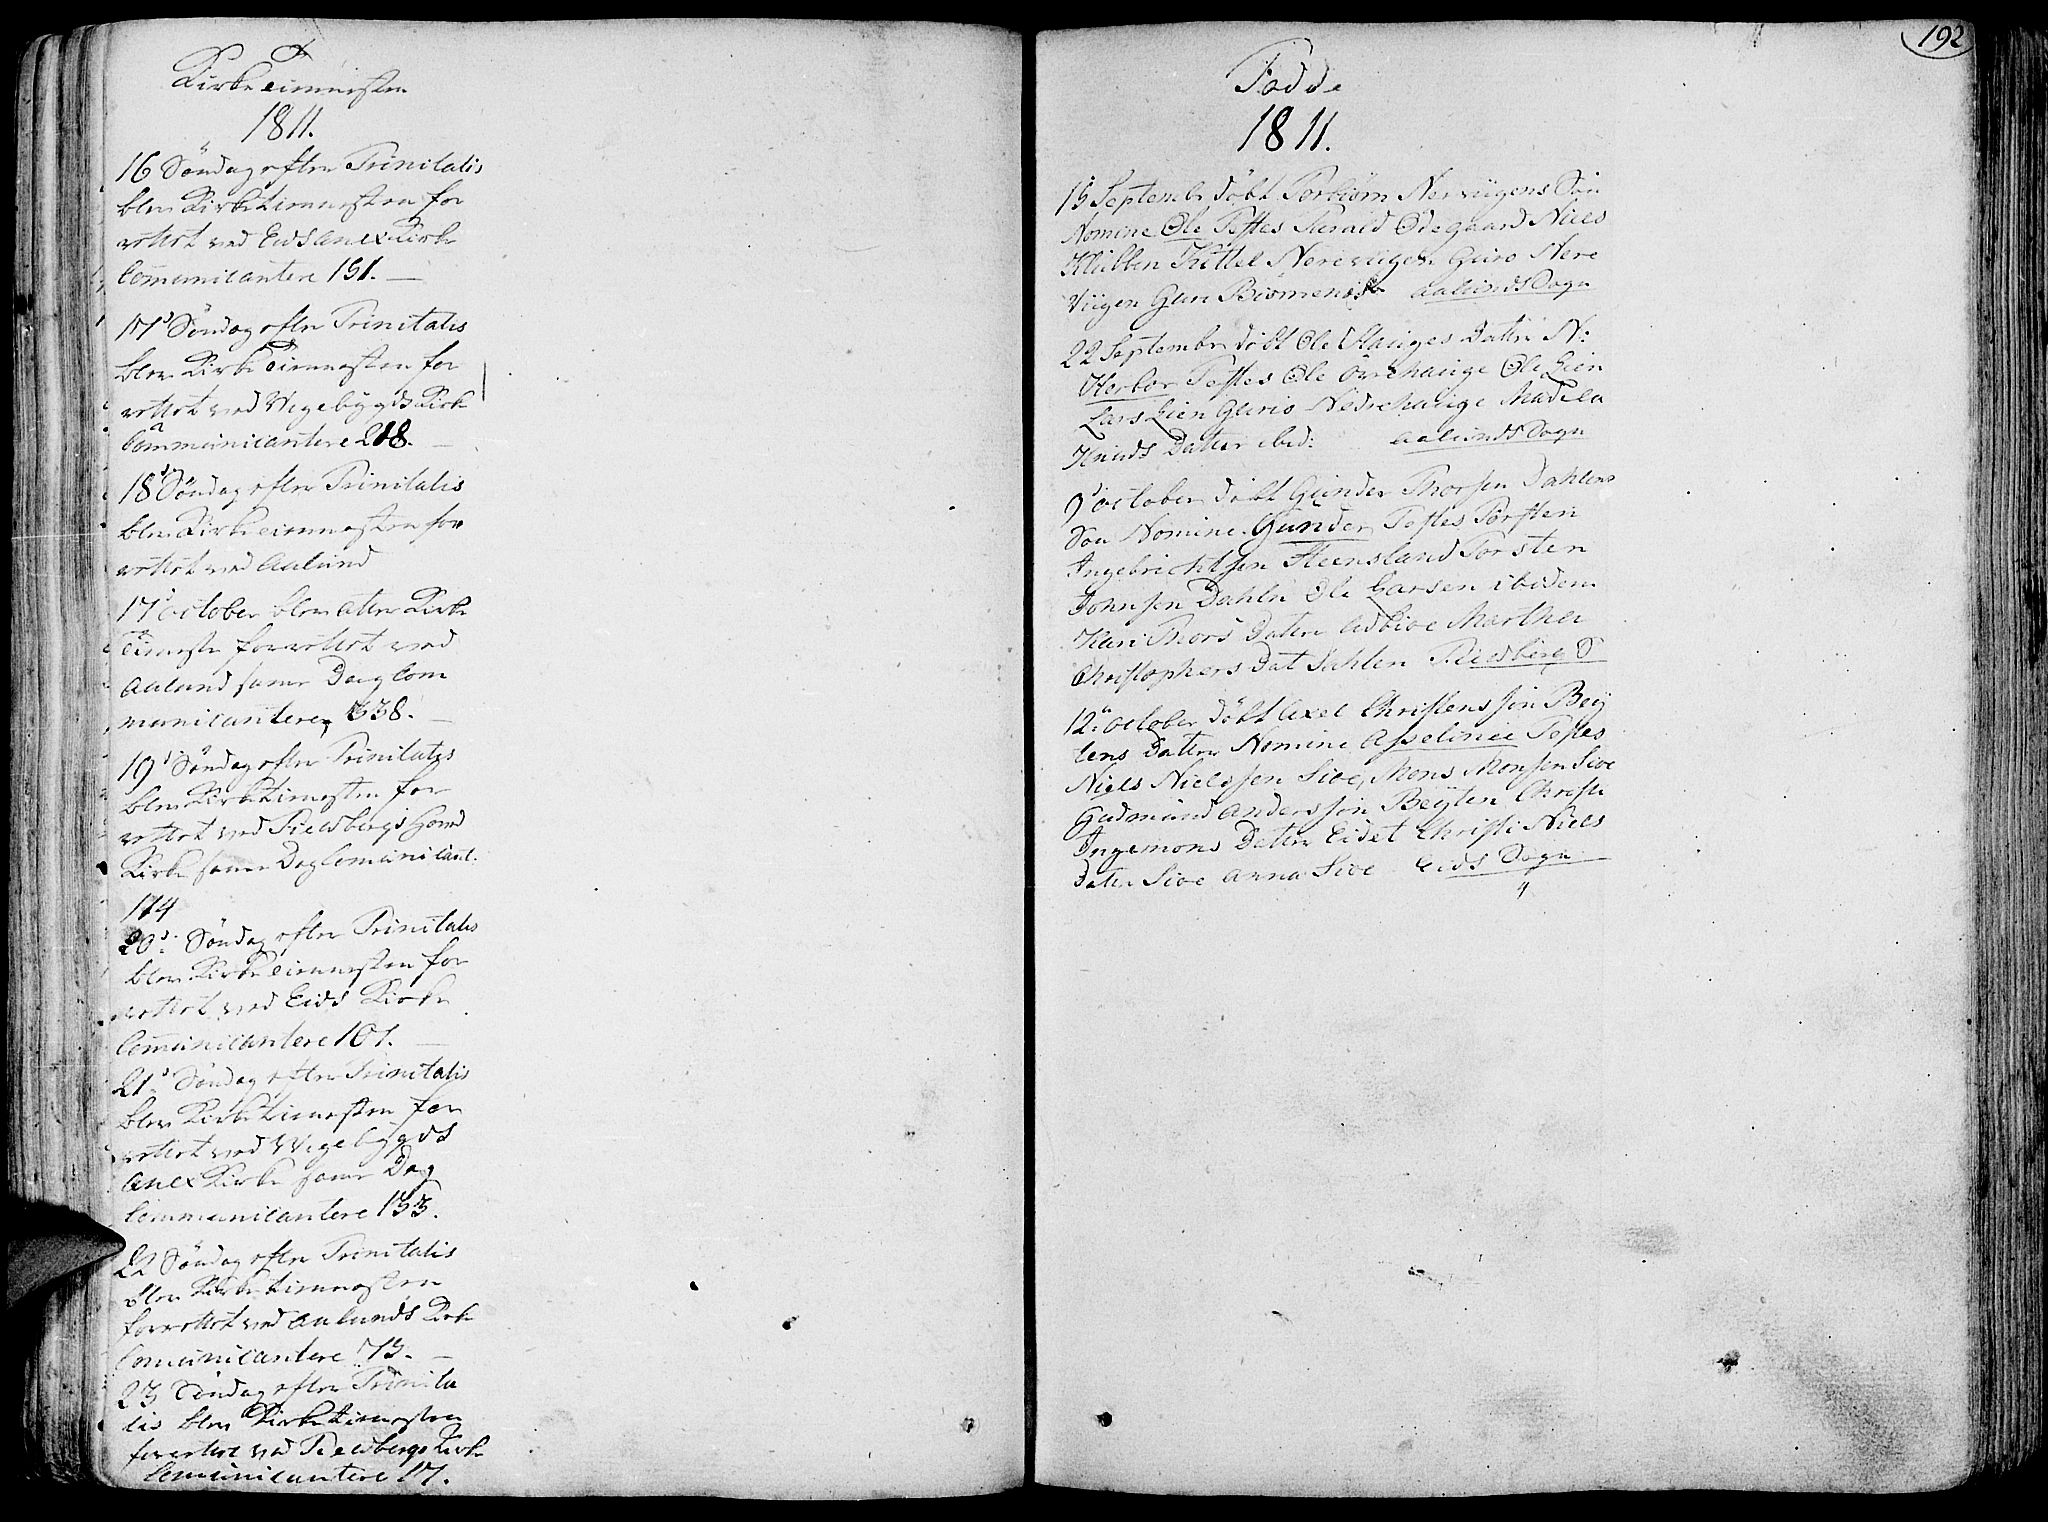 Kirketienesten
1811.
16 Søndag efter Trinitatis
blev Kirketienesten for
rettet ved Eids Anex Kirke
Communicantere 151. —
17de Søndag efter Trinitatis
blev Kirketienesten for
rettet ved Vigebygds Kirke
Communicantere 218. —
18de Søndag efter Trinitatis
blev Kirketienesten for
rettet ved Aalund
17 October blev atter Kirke
Tieneste forrettet ved
Aalund samme Dag Com
municantere 338. —
19de Søndag efter Trinitatis
blev Kirketienesten for
rettet ved Fieldbergs Hoved
Kirke samme Dag Comunicant.
174
20de Søndag efter Trinitatis
blev Kirketienesten for
rettet ved Eids Kirke
Comunicantere 101. —
21de Søndag efter Trinitatis
blev Kirketienesten for
rettet ved Vigebygds
Anex Kirke samme Dag
Communicantere 133.
22 Søndag efter Trinitatis
blev Kirketienesten
forrettet ved Aalunds Kirke
Comunicantere 73. —
23 Søndag efter Trinita
tis blev Kirketienesten
forrettet ved Fieldbergs Kirke
Comunicantere 117.
192
Fødde
1811.
15 Septembr døbt Torbiørn Nerviigens Søn
Nomine Ole Testes Harald Ødegaard Niels
Klubben Kittel Nereviigen Guro Nere
Viigen Guri Aalunds Sogn
22 Septembr døbt Ole Hauges Datter N:
Herbor Testes Ole Øvrehauge Ole Lien
Lars Lien Guro Nedrehauge Madela
Knuds Datter ibid: Aalunds Sogn
9 October døbt Gunder Thorsen Dahlens
Søn Nomine Gunder Testes Torsten
Ingebrichtsen Steensland Torsten
Johnsen Dahlen Ole Larsen ibidem
Kari Thors Datter Marthe
Christophers Dat Dahlen Fieldberg S
12 October døbt Axel Christenssøn Bey
tens Datter Nomine Asseline Testes
Niels Nielssen Sioe, Mons Monsen Sioe
Gudmund Anderssøn Beyten Christi
Ingemons Datter Eidet Christi Niels
Datter Sioe Anna Sioe Eids Sogn